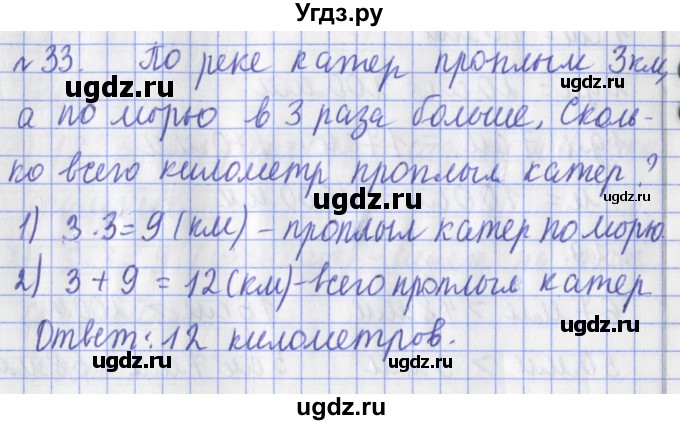 Угдз.ру
№33. По реке катер проплыл 3км,
ugdz.ru ugdz.ru
а по морю в 3 раза больше. Сколь-
ко всего километр проплыл катер?
ugdz.ru
1) 3·3=9 (км) – проплыл катер по морю
2) 3+9=12(км)–всего проплыл катер
ugdz.ru ugdz.ru
Ответ: 12 километров.
ugdz.ru ugdz.ru
ugdz.ru